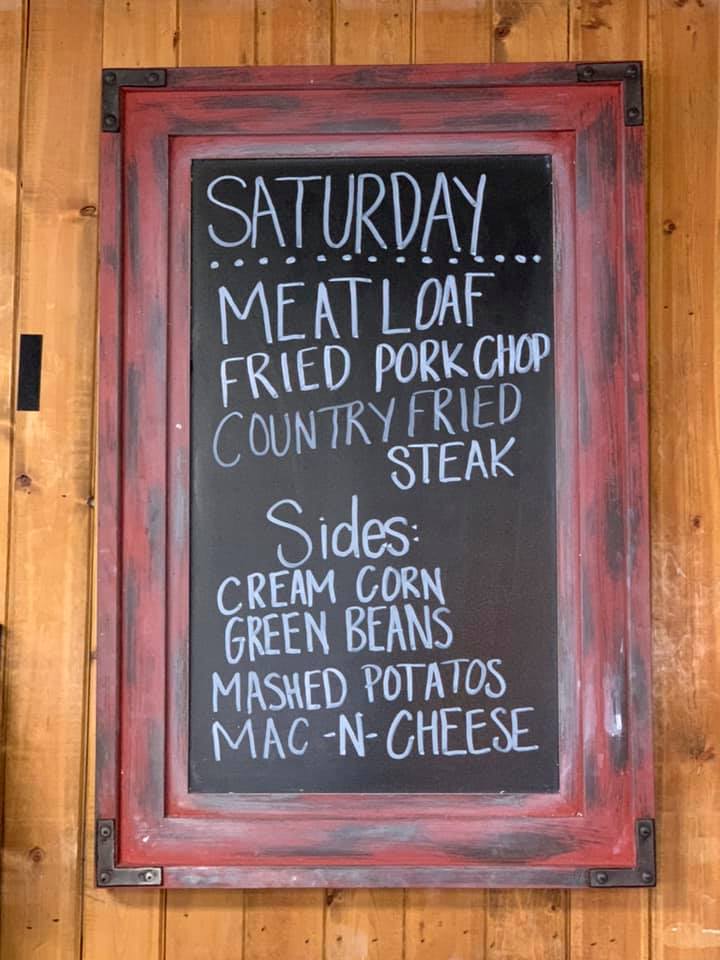 SATURDAY
MEATLOAF
FRIED PORK CHOP
COUNTRY FRIED
STEAK
Sides:
CREAM CORN
GREEN BEANS
MASHED POTATOS
MAC -N- CHEESE